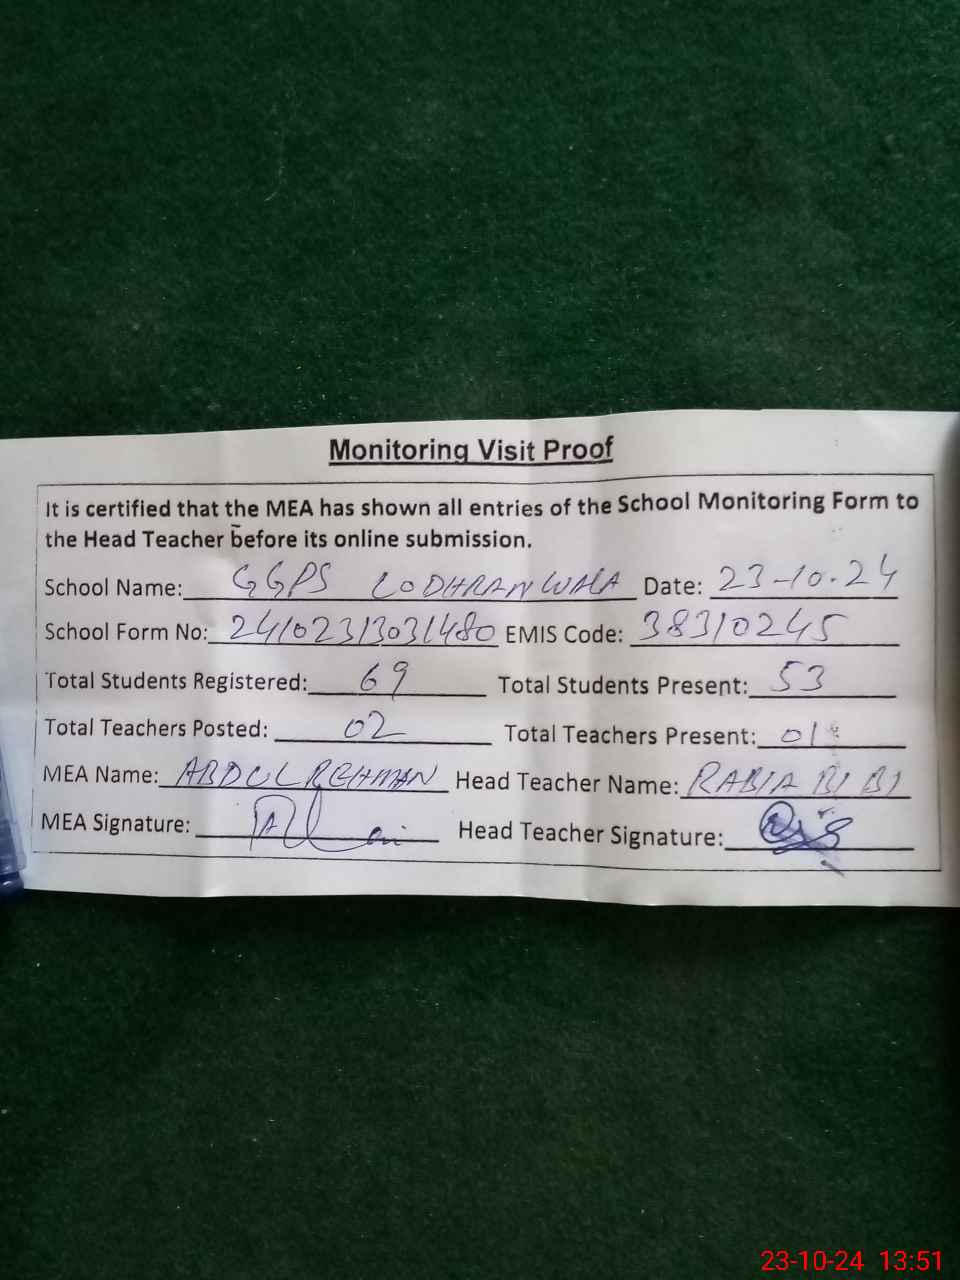 Monitoring Visit Proof
It is certified that the MEA has shown all entries of the School Monitoring Form to
the Head Teacher before its online submission.
School Name: GGPS LODHRANWALA Date: 23-10-24
School Form No: 24102313031480 EMIS Code: 38310245
Total Students Registered: 69 Total Students Present: 53
Total Teachers Posted: 02 Total Teachers Present: 01
MEA Name: ABDUL REHMAN Head Teacher Name: RABIA BIBI
MEA Signature: Head Teacher Signature:
23-10-24 13:51